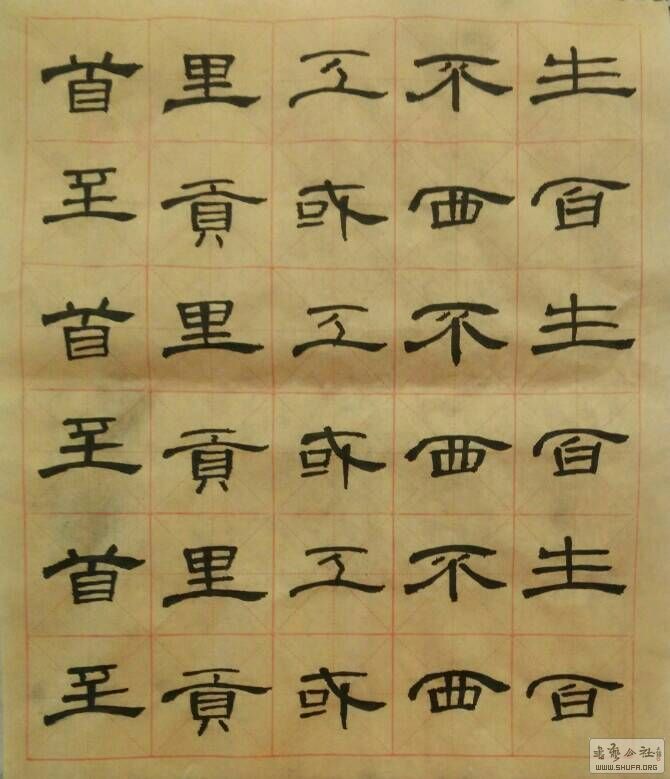 生百生百生百
不西不西不西
或或或
里貢里貢里貢
首至首至首至
WWW.SHUFA.ORG